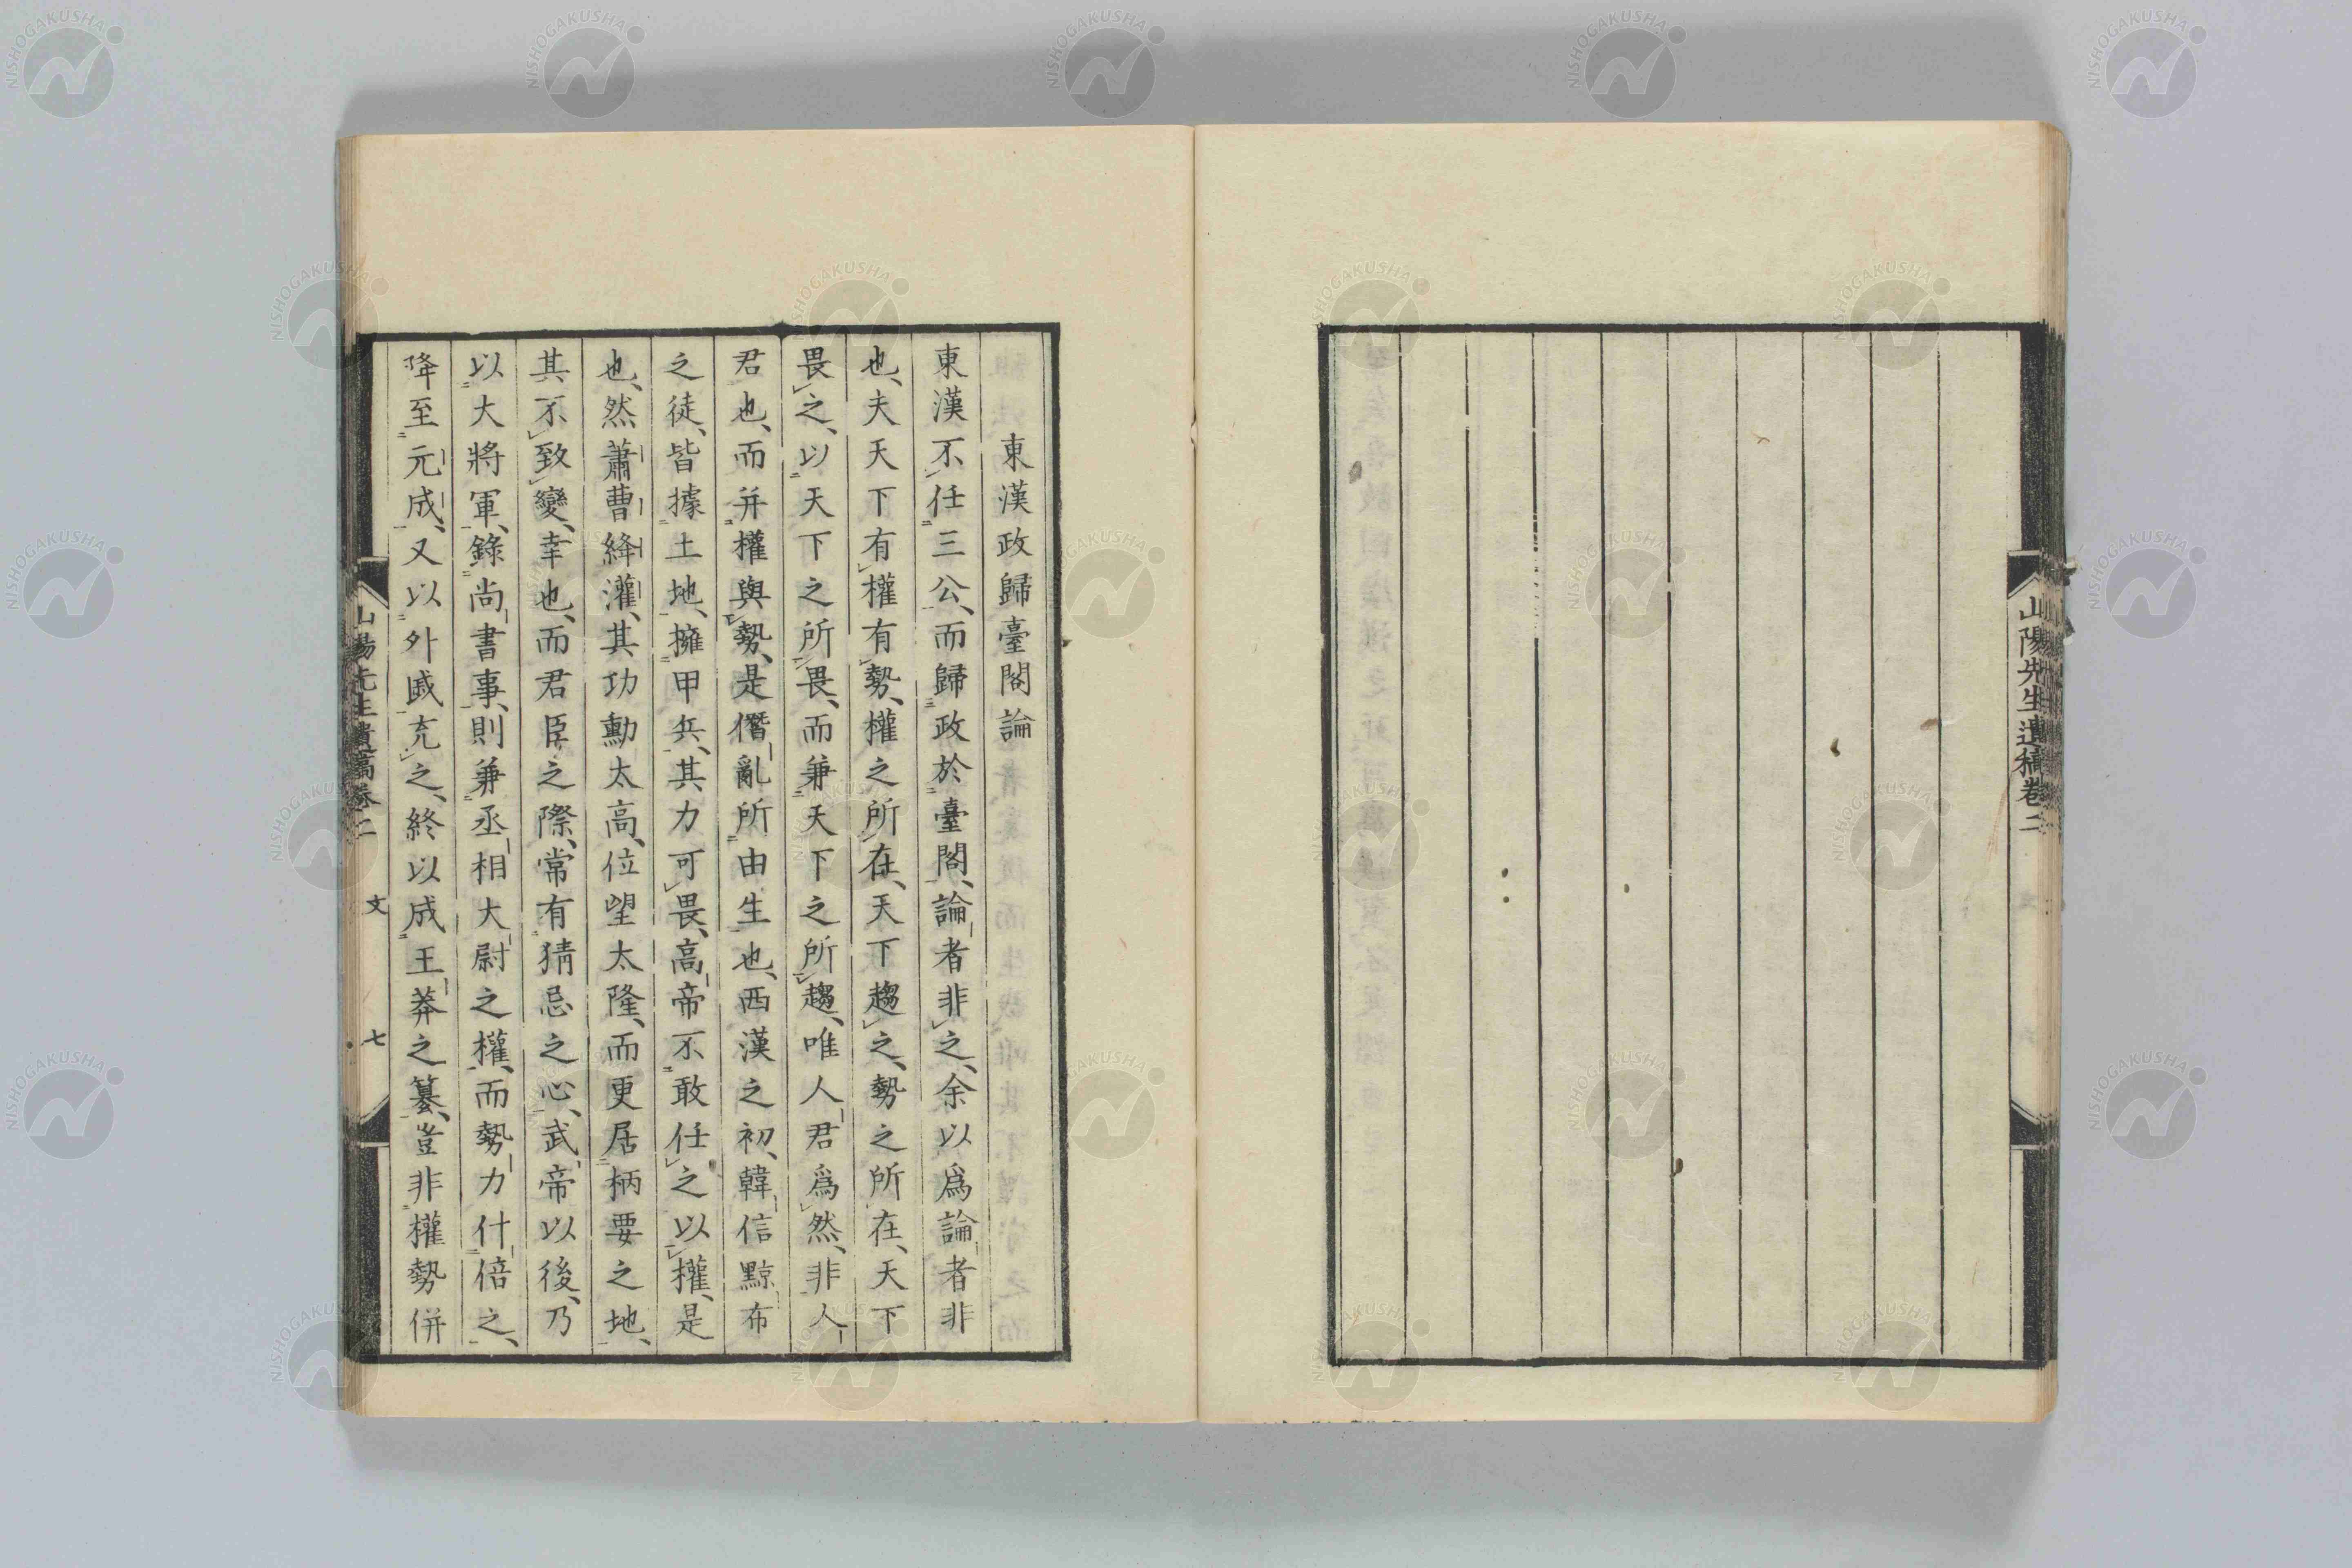 山陽先生遺稿卷二
東漢政歸臺閣論
東漢不任三公、而歸政於臺閣、論者非之、余以爲論者非
也、夫天下有權有勢、權之所在、天下趨之、勢之所在、天下
畏之、以天下之所畏、而兼天下之所趨、唯人君爲然、非人
君也、而并權與勢、是僭亂所由生也、西漢之初、韓信黥布
之徒、皆據土地、擁甲兵、其力可畏、高帝不敢任之以權、是
也、然蕭曹絳灌、其功勳太高、位望太隆、而更居柄要之地、
其不致變、幸也、而君臣之際、常有猜忌之心、武帝以後、乃
以大將軍、錄尚書事、則兼丞相大尉之權、而勢力什倍之、
降至元成、又以外戚充之、終以成王莽之篡、豈非權勢併
山陽先生遺稿卷二 文 七
NISHOGAKUSHA